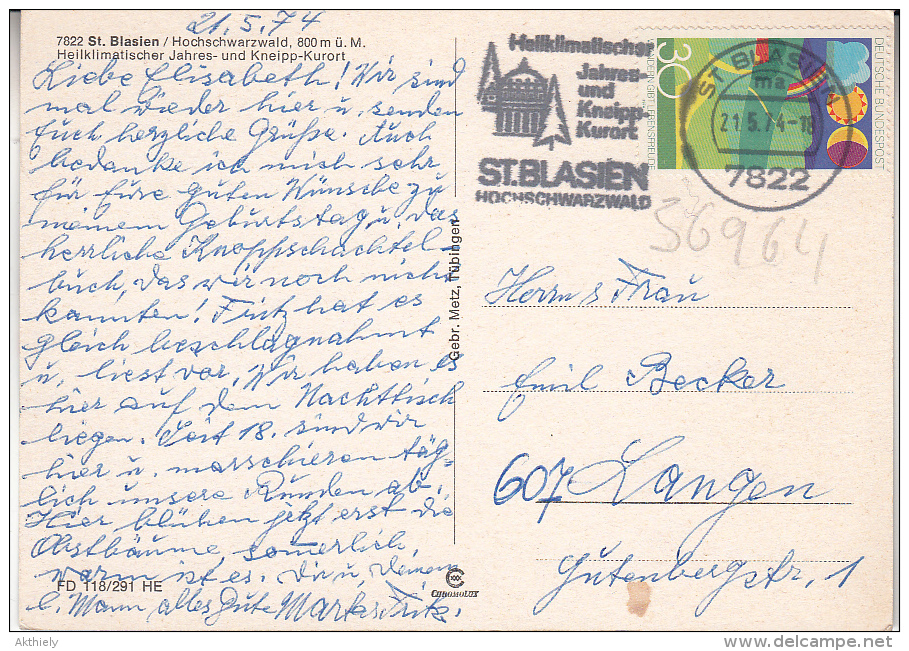 21.5.74
7822 St. Blasien / Hochschwarzwald, 800 m ü. M.
Heilklimatischer Jahres- und Kneipp-Kurort
Liebe Elisabeth! Wir sind
mal wieder hier u. senden
Euch herzliche Grüße. Auch
bedanke ich mich sehr
für Eure guten Wünsche zu
meinem Geburtstag u. das
herrliche Knoppschachtel-
buch, das wir noch nicht
kannten! Fritz hat es
gleich beschlagnahmt
u. liest vor, Wir haben es
hier auf dem Nachttisch
liegen. Seit 18. sind wir
hier u. marschieren täg-
lich unsere Runden ab.
Hier blühen jetzt erst die
Obstbäume, sommerlich
warm ist es. Dir u. Deinem
l. Mann alles Gute Marta + Fritz.
FD 118/291 HE
Gebr. Metz, Tübingen
CHROMOLUX
Heilklimatischer
Jahres-
und
Kneipp-
Kurort
ST.BLASIEN
HOCHSCHWARZWALD
30
KINDERN GIBT LEBENSFREUDE
DEUTSCHE BUNDESPOST
ST BLASIEN
ma
21.5.74-18
7822
36964
Herrn & Frau
Emil Becker
607 Langen
Gutenbergstr. 1
Akthiely
www.delcampe.net